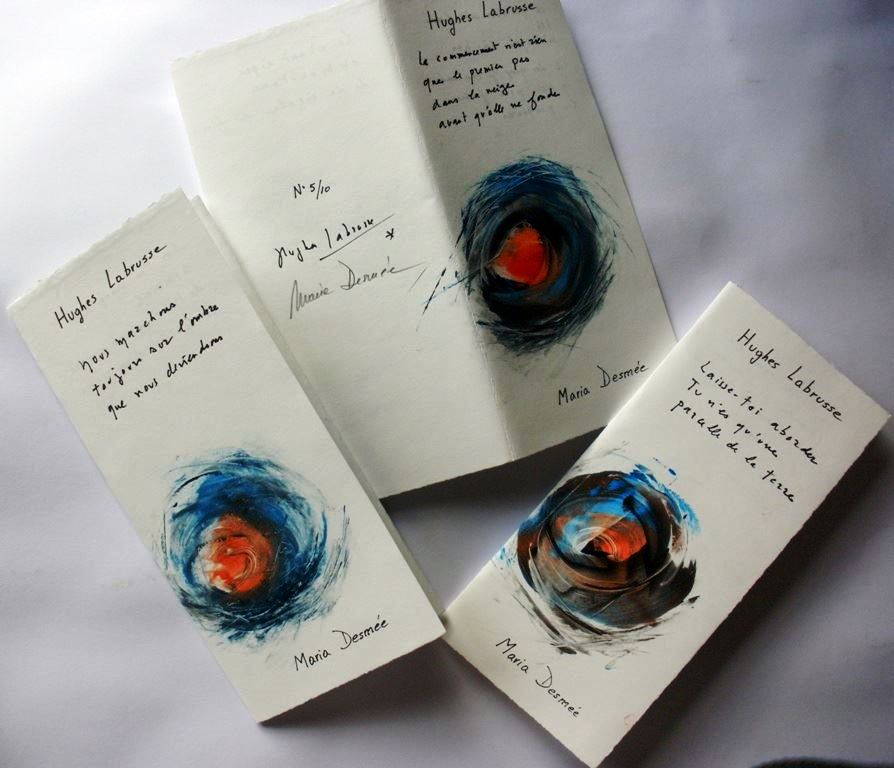 Hughes Labrusse
le commencement n'est rien
que le premier pas
dans la neige
avant qu'elle ne fonde
N° 5/10
Hughes Labrusse
*
Maria Desmée
Maria Desmée
Hughes Labrusse
nous marchons
toujours sur l'ombre
que nous deviendrons
Maria Desmée
Hughes Labrusse
Laisse-toi aborder
Tu n'es qu'une
parcelle de la terre
Maria Desmée